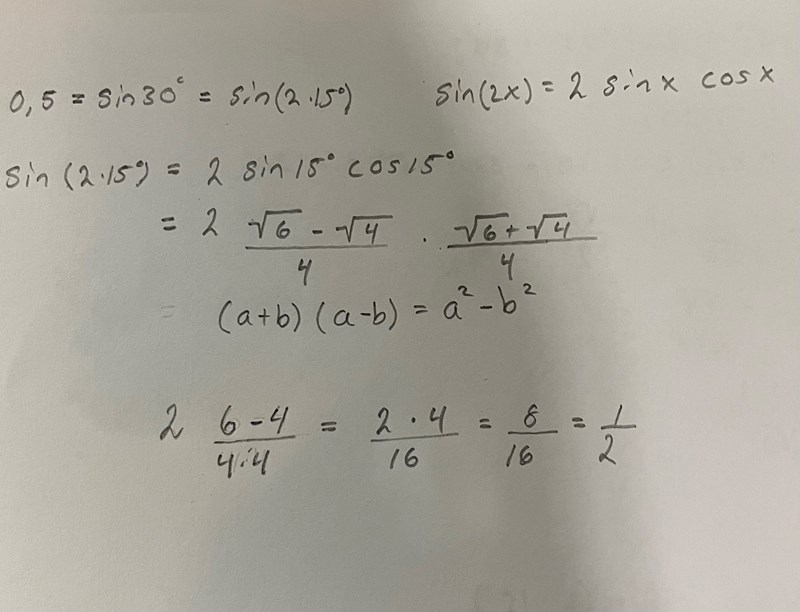 0,5 = sin30° = sin(2·15°) sin(2x) = 2 sinx cosx
sin(2·15°) = 2 sin15° cos15°
= 2 (√6 - √4)/4 · (√6 + √4)/4
= (a+b)(a-b) = a² - b²
2 (6-4)/(4·4) = (2·4)/16 = 8/16 = 1/2